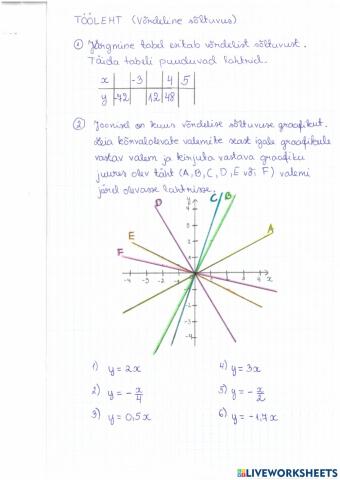 TÖÖLEHT (Võrdeline sõltuvus)
① Järgmine tabel esitab võrdelist sõltuvust.
Täida tabeli puuduvad lahtrid.
x -3 4 5
y -72 12 48
② Joonisel on kuus võrdelise sõltuvuse graafikut.
Leia kõrvalolevate valemite seast igale graafikule
vastav valem ja kirjuta vastava graafiku
juures olev täht (A, B, C, D, E või F) valemi
järel olevasse lahtrisse.
D C B
y
E A
F
-4 -3 -2 -1 1 2 3 4 x
1) y = 2x 4) y = 3x
2) y = -x/4 5) y = -x/2
3) y = 0,5x 6) y = -1,7x
LIVEWORKSHEETS